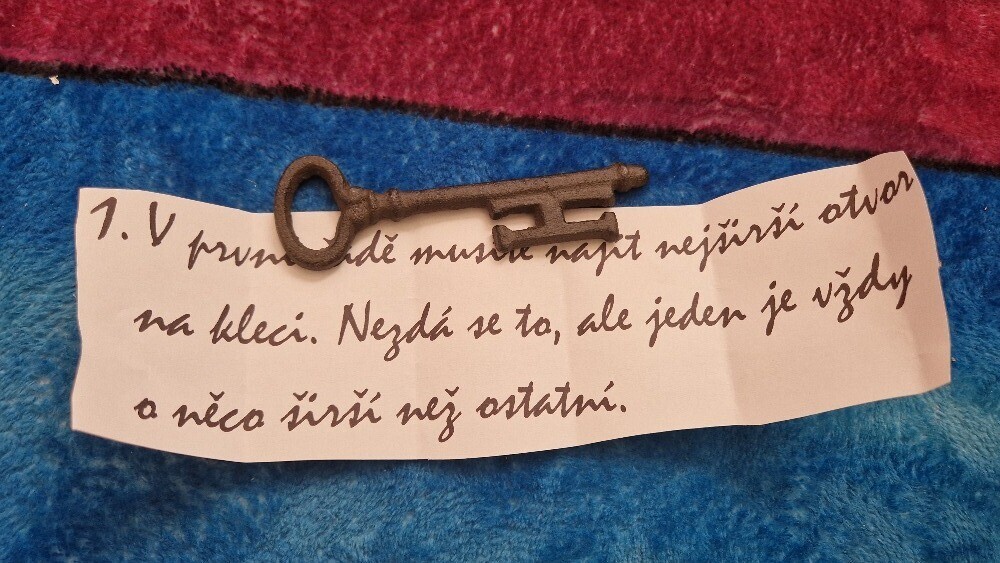 1. V první řadě musíte najít nejširší otvor
na kleci. Nezdá se to, ale jeden je vždy
o něco širší než ostatní.